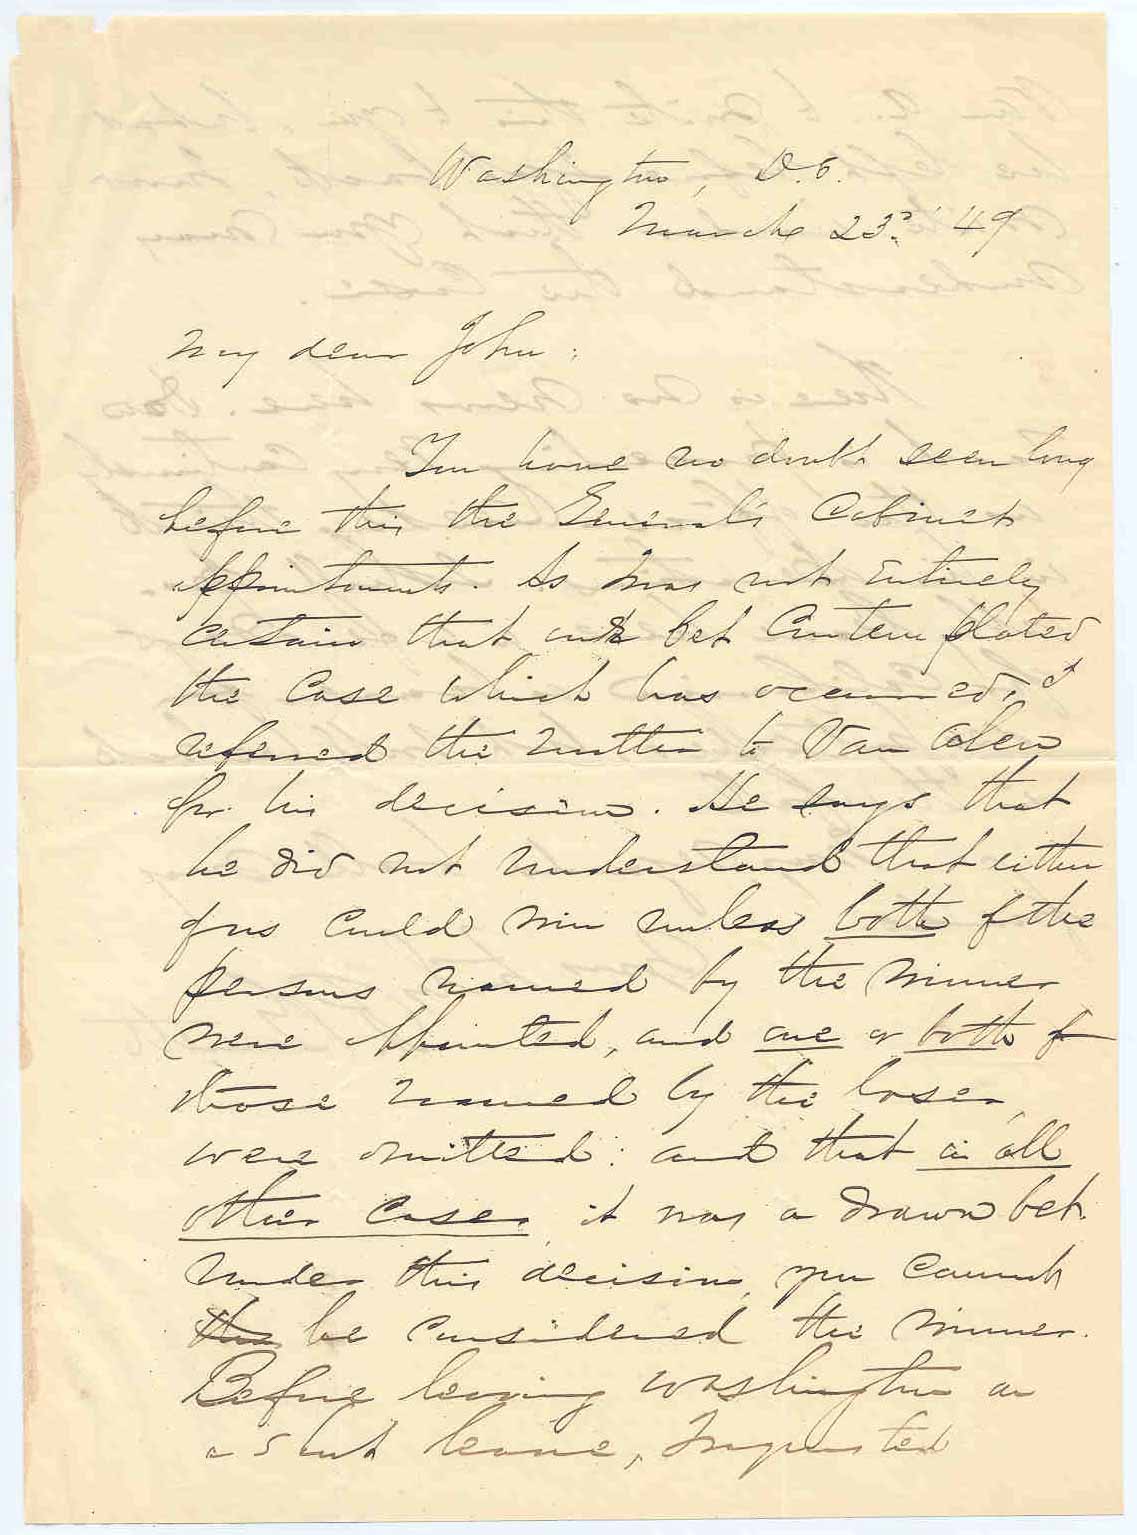 Washington, D.C.
March 23d '49
My dear John:
You have no doubt seen long
before this the General's Cabinet
appointments. As I was not entirely
certain that our bet contemplated
the case which has occurred, I
referred the matter to Van Alen
for his decision. He says that
he did not understand that either
of us could win unless both of the
persons named by the winner
were appointed, and one or both of
those named by the loser,
were omitted: and that in all
other cases, it was a drawn bet.
Under this decision, you cannot
be considered the winner.
Before leaving Washington on
a short leave, I requested